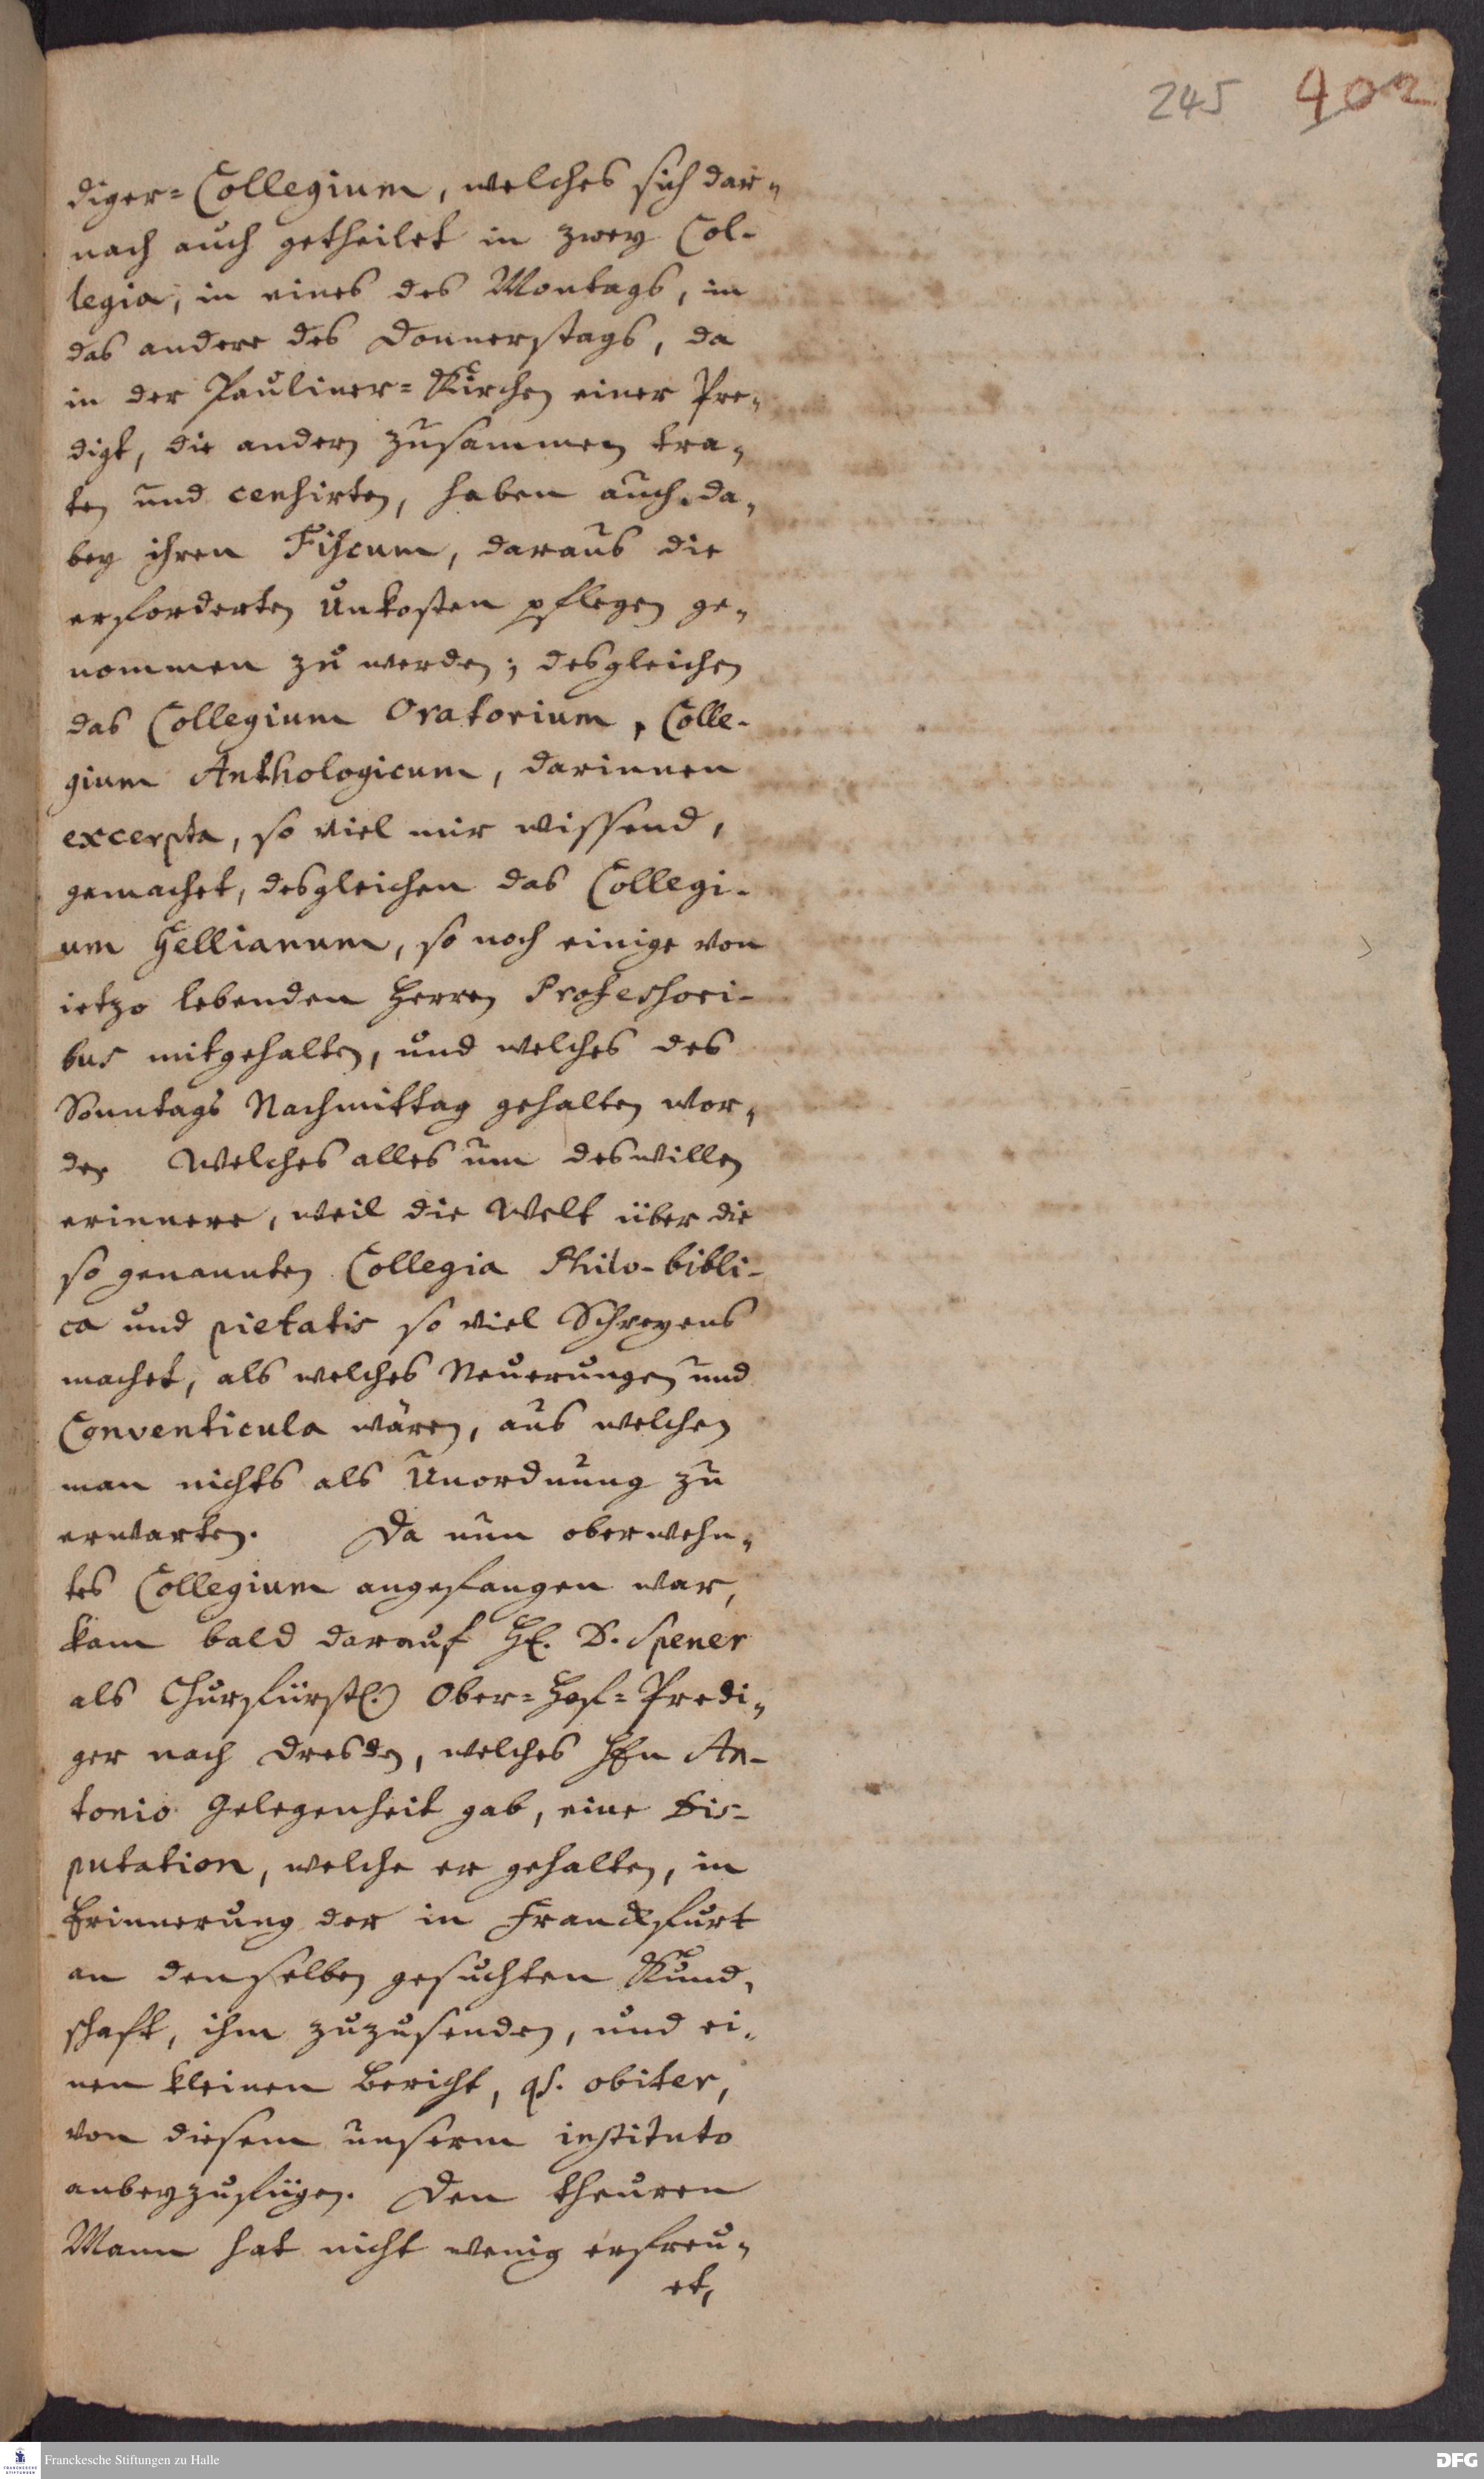 245 402
diger=Collegium, welches sich dar„
nach auch getheilet in zwey Col-
legia, in eines des Montags, in
das andere des Donnerstags, da
in der Pauliner=Kirchen einer Pre„
digt, die andern zusammen tra„
ten und censirten, haben auch da„
bey ihren Fiscum, daraus die
erforderten Unkosten pflegen ge„
nommen zu werden; desgleichen
das Collegium Oratorium, Colle-
gium Anthologicum, darinnen
excerpta, so viel mir wissend,
gemachet, desgleichen das Collegi-
um Gellianum, so noch einige von
ietzo lebenden Herren Professori-
bus mitgehalten, und welches des
Sonntags Nachmittag gehalten wor„
den. Welches alles um deswillen
erinnere, weil die Welt über die
so genannten Collegia Philo-bibli-
ca und pietatis so viel Schreyens
machet, als welches Neuerungen und
Conventicula wären, aus welchen
man nichts als Unordnung zu
erwarten. Da nun oberwehn„
tes Collegium angefangen war,
kam bald darauf H. D. Spener
als Churfürstl. Ober=Hof=Predi„
ger nach Dresden, welches Hn An-
tonio Gelegenheit gab, eine Dis-
putation, welche er gehalten, in
Erinnerung der in Franckfurt
an denselben gesuchten Kund„
schaft, ihm zuzusenden, und ei„
nen kleinen Bericht, qs. obiter,
von diesem unserm instituto
anbeyzufügen. Den theuren
Mann hat nicht wenig erfreu„
et,
Franckesche Stiftungen zu Halle
FRANCKESCHE STIFTUNGEN
DFG